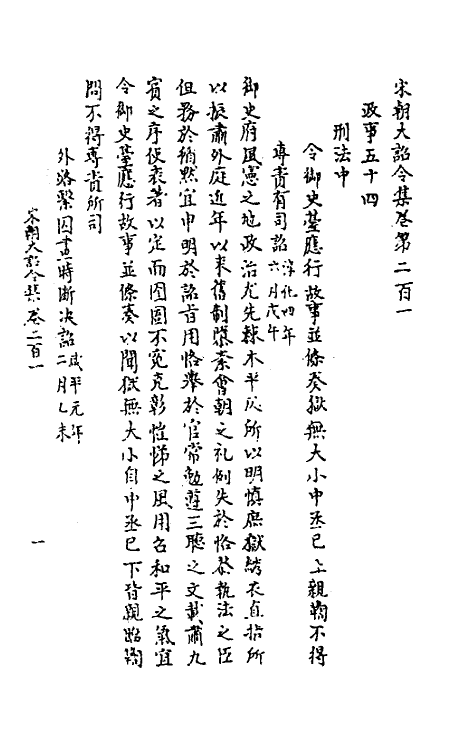 宋朝大詔令集卷第二百一
政事五十四
刑法中
令御史臺應行故事並條奏獄無大小中丞已上親鞫不得
專責有司詔淳化四年六月戊午
御史府風憲之地政治尤先棘木平反所以明慎庶獄繡衣直指所
以振肅外庭近年以來舊制隳紊會朝之礼例失於恪恭執法之臣
但務於循默宜申明於詔旨用恪舉於官常勉遵三聽之文載肅九
賓之序使表著以定而囹圄不冤克彰愷悌之風用召和平之氣宜
令御史臺應行故事並條奏以聞獄無大小自中丞已下皆親臨鞫
問不得專責所司
外路繫囚畫時斷决詔咸平元年二月乙未
宋朝大詔令集卷二百一
一